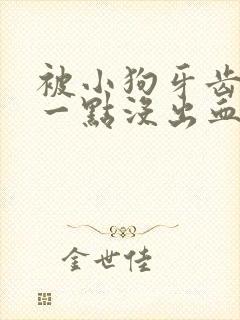 被小狗牙齒
一點沒出血
金世佳